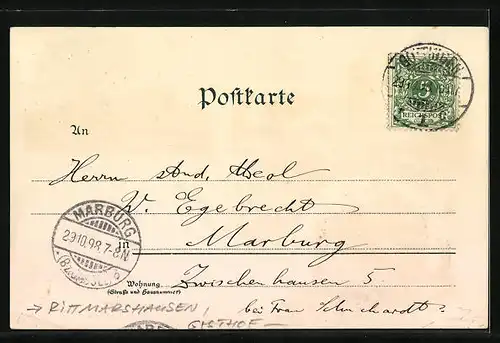 Postkarte
5
REICHSPOST
An
Herrn stud. theol
W. Egebrecht
MARBURG
29 10.98. 7-8N
in Marburg
Wohnung Zwischenhausen 5
(Straße und Hausnummer)
bei Frau Schuchardt
→ RITTMARSHAUSEN,
GASTHOF –